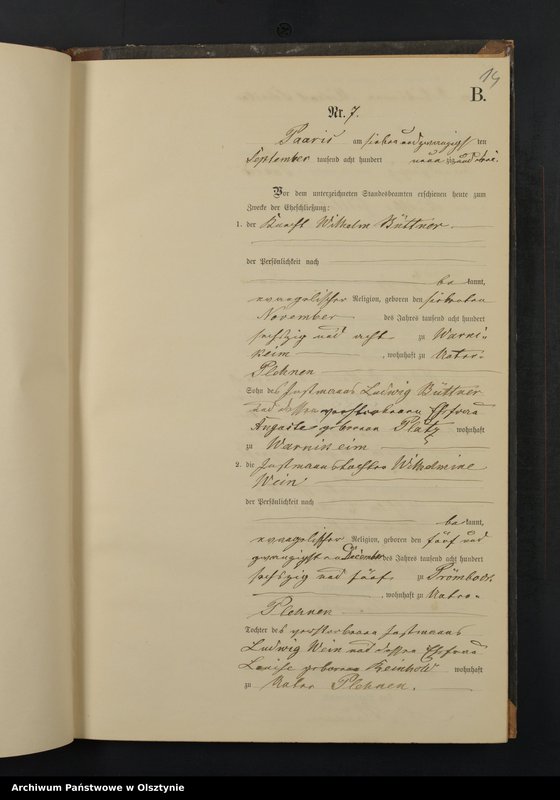 14
B.
Nr. 7.
Paaris am sieben und zwanzigsten
September tausend acht hundert neun zig und drei.
Vor dem unterzeichneten Standesbeamten erschienen heute zum
Zwecke der Eheschließung:
1. der Knecht Wilhelm Büttner
der Persönlichkeit nach
be kannt,
evangelischer Religion, geboren den siebenten
November des Jahres tausend acht hundert
sechszig und acht zu Warni-
keim, wohnhaft zu Unter-
Plehnen
Sohn des Instmanns Ludwig Büttner
und dessen verstorbenen Ehefrau
geborenen Plätz wohnhaft
zu Warnikeim
2. die Instmannstochter Wilhelmine
Wein
der Persönlichkeit nach
be kannt,
evangelischer Religion, geboren den fünf und
zwanzigsten December des Jahres tausend acht hundert
sechszig und fünf zu Prömbock
, wohnhaft zu Unter-
Plehnen
Tochter des verstorbenen Instmanns
Ludwig Wein und dessen Ehefrau
Louise geborenen Reinhold wohnhaft
zu Unter Plehnen.
Archiwum Państwowe w Olsztynie